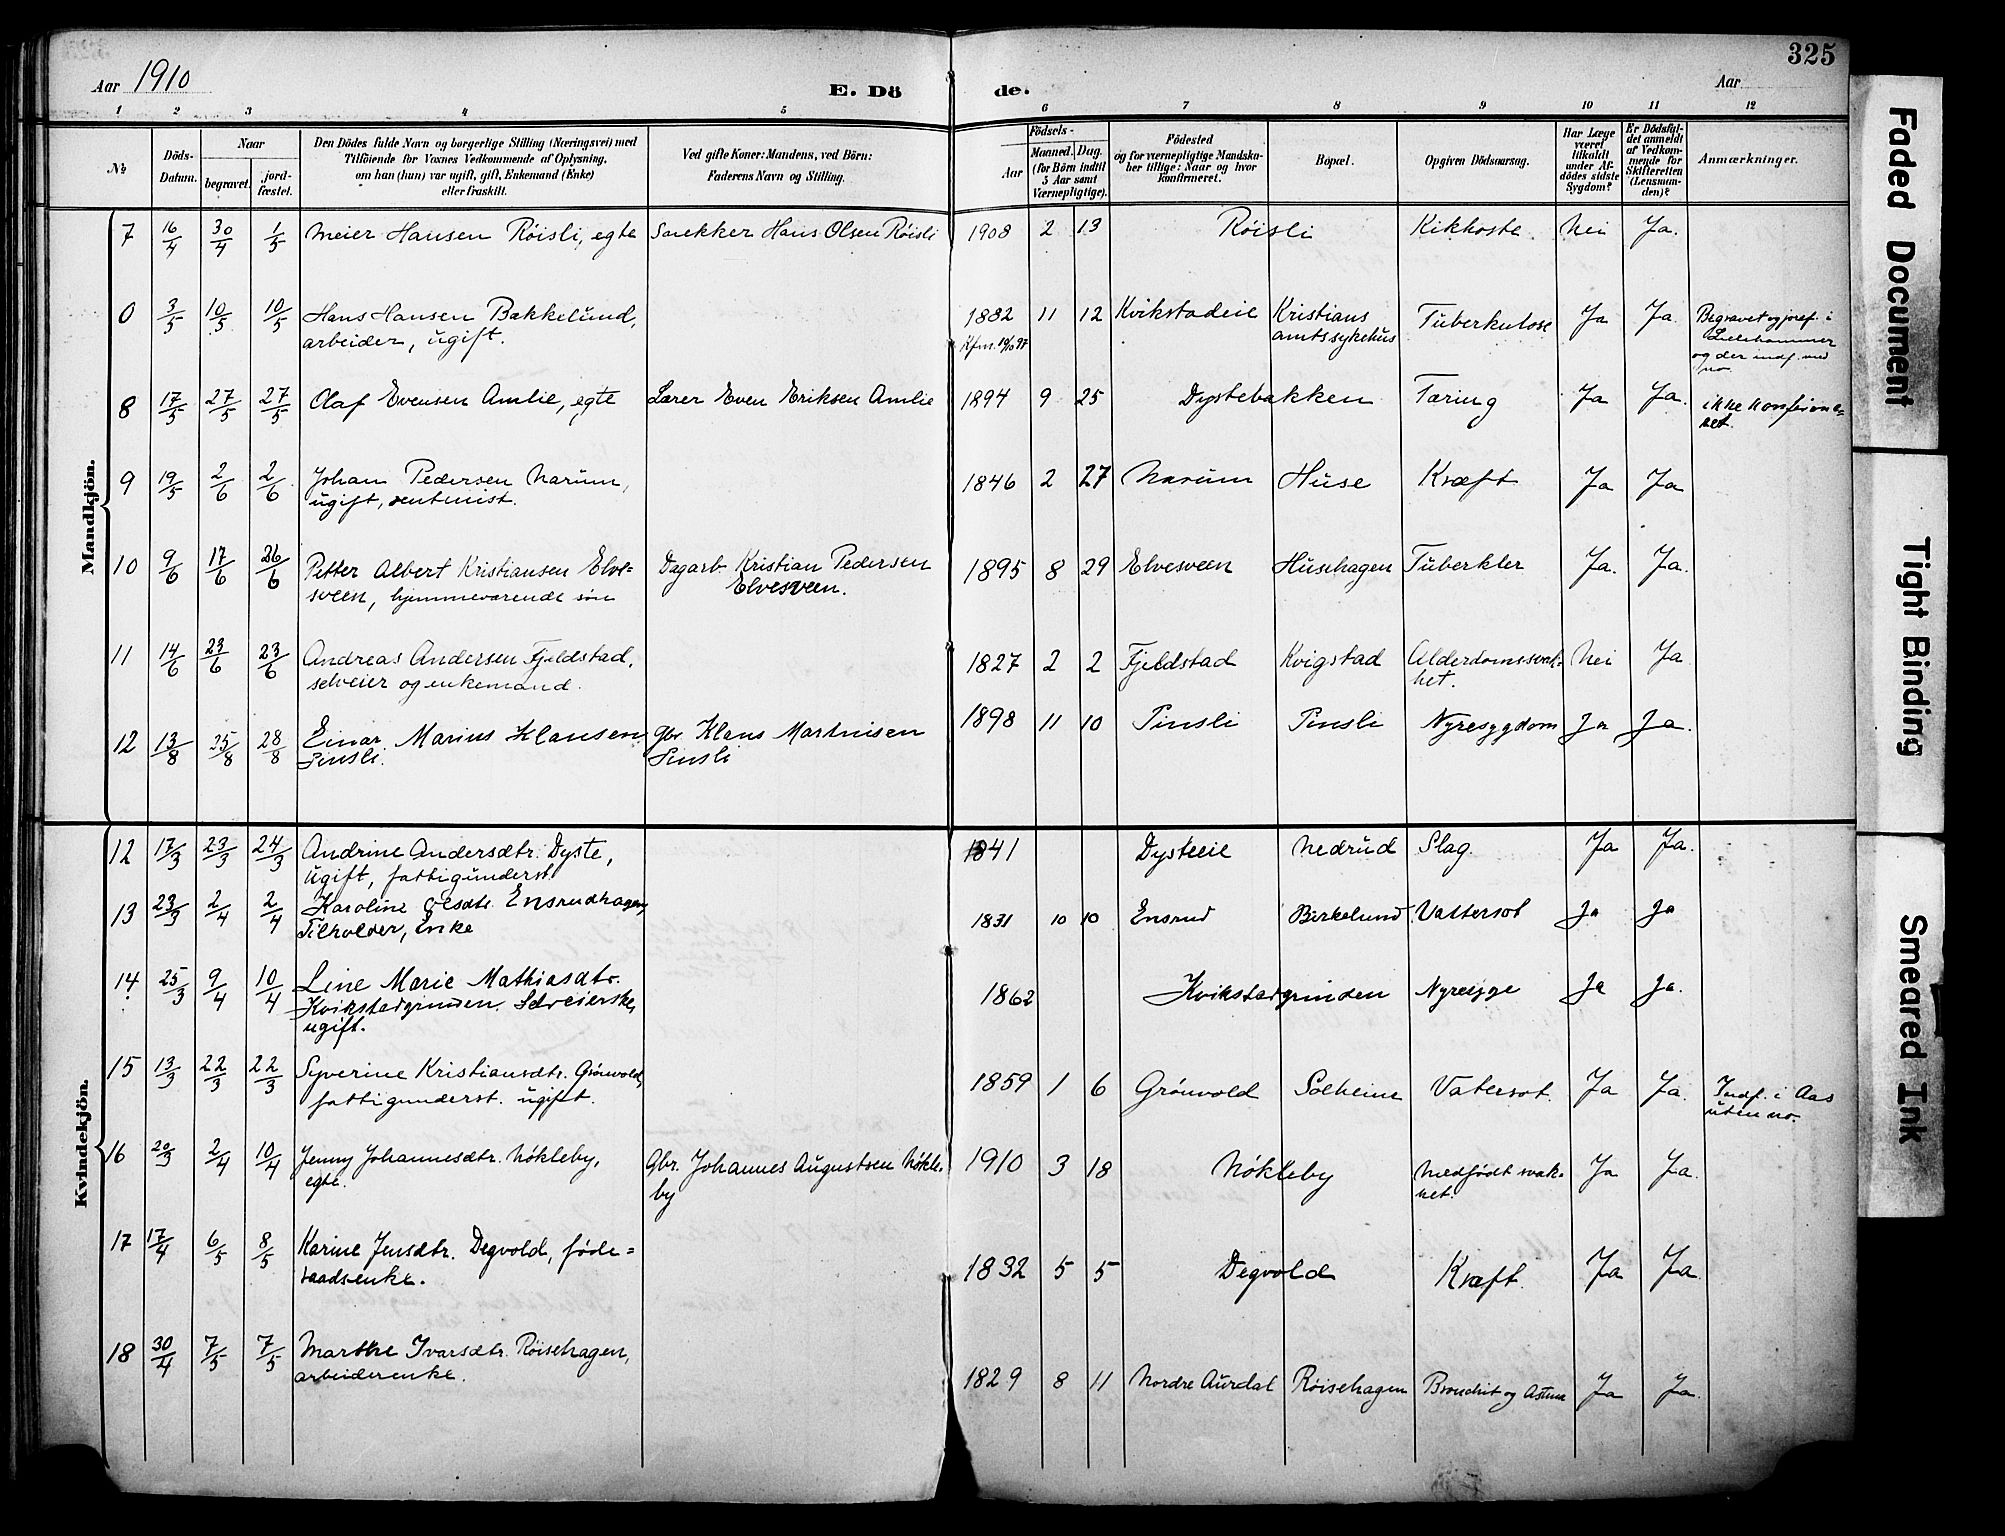 325
Aar 1910
E. Dö
de.
Aar
1 2 3 4 5 6 7 8 9 10 11 12
No
Döds-Datum.
Naar
begravet.
jordfæstet.
Den Dödes fulde Navn og borgerlige Stilling (Næringsvei) med
Tilföiende for Voxnes Vedkommende af Oplysning,
om han (hun) var ugift, gift, Enkemand (Enke)
eller fraskilt.
Ved gifte Koner: Mandens, ved Börn:
Faderens Navn og Stilling.
Födsels-
Aar
Maaned. Dag.
(for Börn indtil
5 Aar samt
Værnepligtige).
Födested
og for værnepligtige Mandskaber tillige: Naar og hvor
konfirmeret.
Bopæl.
Opgiven Dödsaarsag.
Har Læge
været
tilkaldt
under Afdödes sidste
Sygdom?
Er Dödsfaldet anmeldt
af Vedkommende for
Skifteretten
(Lensmanden)?
Anmærkninger.
Mandkjön.
7 16/4 30/4 1/5 Meier Hansen Röisli, egte Snekker Hans Olsen Röisli 1908 2 13 Röisli Kikhoste Nei Ja.
0 3/5 10/5 10/5 Hans Hansen Bakkelund, 1882 11 12 Kvikstadeie Kristians Tuberkulose Ja Ja. Begravet og jordf. i
arbeider, ugift. Kfm. 10/10 97 amtssykehus Lillehammer
og der indf. med
no
8 17/5 27/5 27/5 Olaf Evensen Amlie, egte Lærer Even Eriksen Amlie 1894 9 25 Dystebakken Tæring Ja Ja. ikke konfirme=
ret.
9 19/5 2/6 2/6 Johan Pedersen Narum, 1846 2 27 Narum Huse Kræft Ja Ja
ugift, rentenist.
10 9/6 17/6 26/6 Petter Albert Kristiansen Elve= Dagarb. Kristian Pedersen 1895 8 29 Elvesveen Husehagen Tuberkler Ja. Ja.
sveen, hjemmeværende søn Elvesveen.
11 14/6 23/6 23/6 Andreas Andersen Fjeldstad, 1827 2 2 Fjeldstad Kvigstad Alderdomssvak= Nei Ja
selveier og enkemand. het.
12 13/8 25/8 28/8 Einar Marius Klausen Gbr. Klaus Martinisen 1898 11 10 Sinsli Sinsli Nyresygdom Ja Ja.
Sinsli. Sinsli
Kvindekjön.
12 17/3 23/3 24/3 Andrine Andersdtr. Dyste, 1841 Dysteeie Nedrud Slag. Ja Ja.
ugift, fattigunderst.
13 23/3 2/4 2/4 Karoline Olesdtr. Ensrudhagen, 1831 10 10 Ensrud Birkelund. Vattersot Ja Ja
Tilholder, Enke
14 25/3 9/4 10/4 Line Marie Mathiasdtr. 1862 Kvikstadgrinden Nyresyge Ja Ja.
Kvikstadgrinden. Selveierske,
ugift.
15 13/3 22/3 22/3 Syverine Kristiansdtr. Grönvold, 1859 1 6 Grönvold Solheim Vatersot. Ja Ja. Indf. i Aas
fattigunderst. ugift. uten no.
16 20/3 2/4 10/4 Jenny Johannesdtr. Nökleby, Gbr. Johannes Augustsen Nökle= 1910 3 18 Nökleby Medfödt svak= Ja Ja.
egte. by het.
17 17/4 6/5 8/5 Karine Jensdtr. Degvold, føde= 1832 5 5 Degvold Kræft. Ja Ja
raadsenke.
18 30/4 7/5 7/5 Marthe Ivarsdtr. Röisehagen, 1829 8 11 Nordre Aurdal Röisehagen Bronchit og Astma Ja Ja.
arbeiderenke.
Faded Document
Tight Binding
Smeared Ink